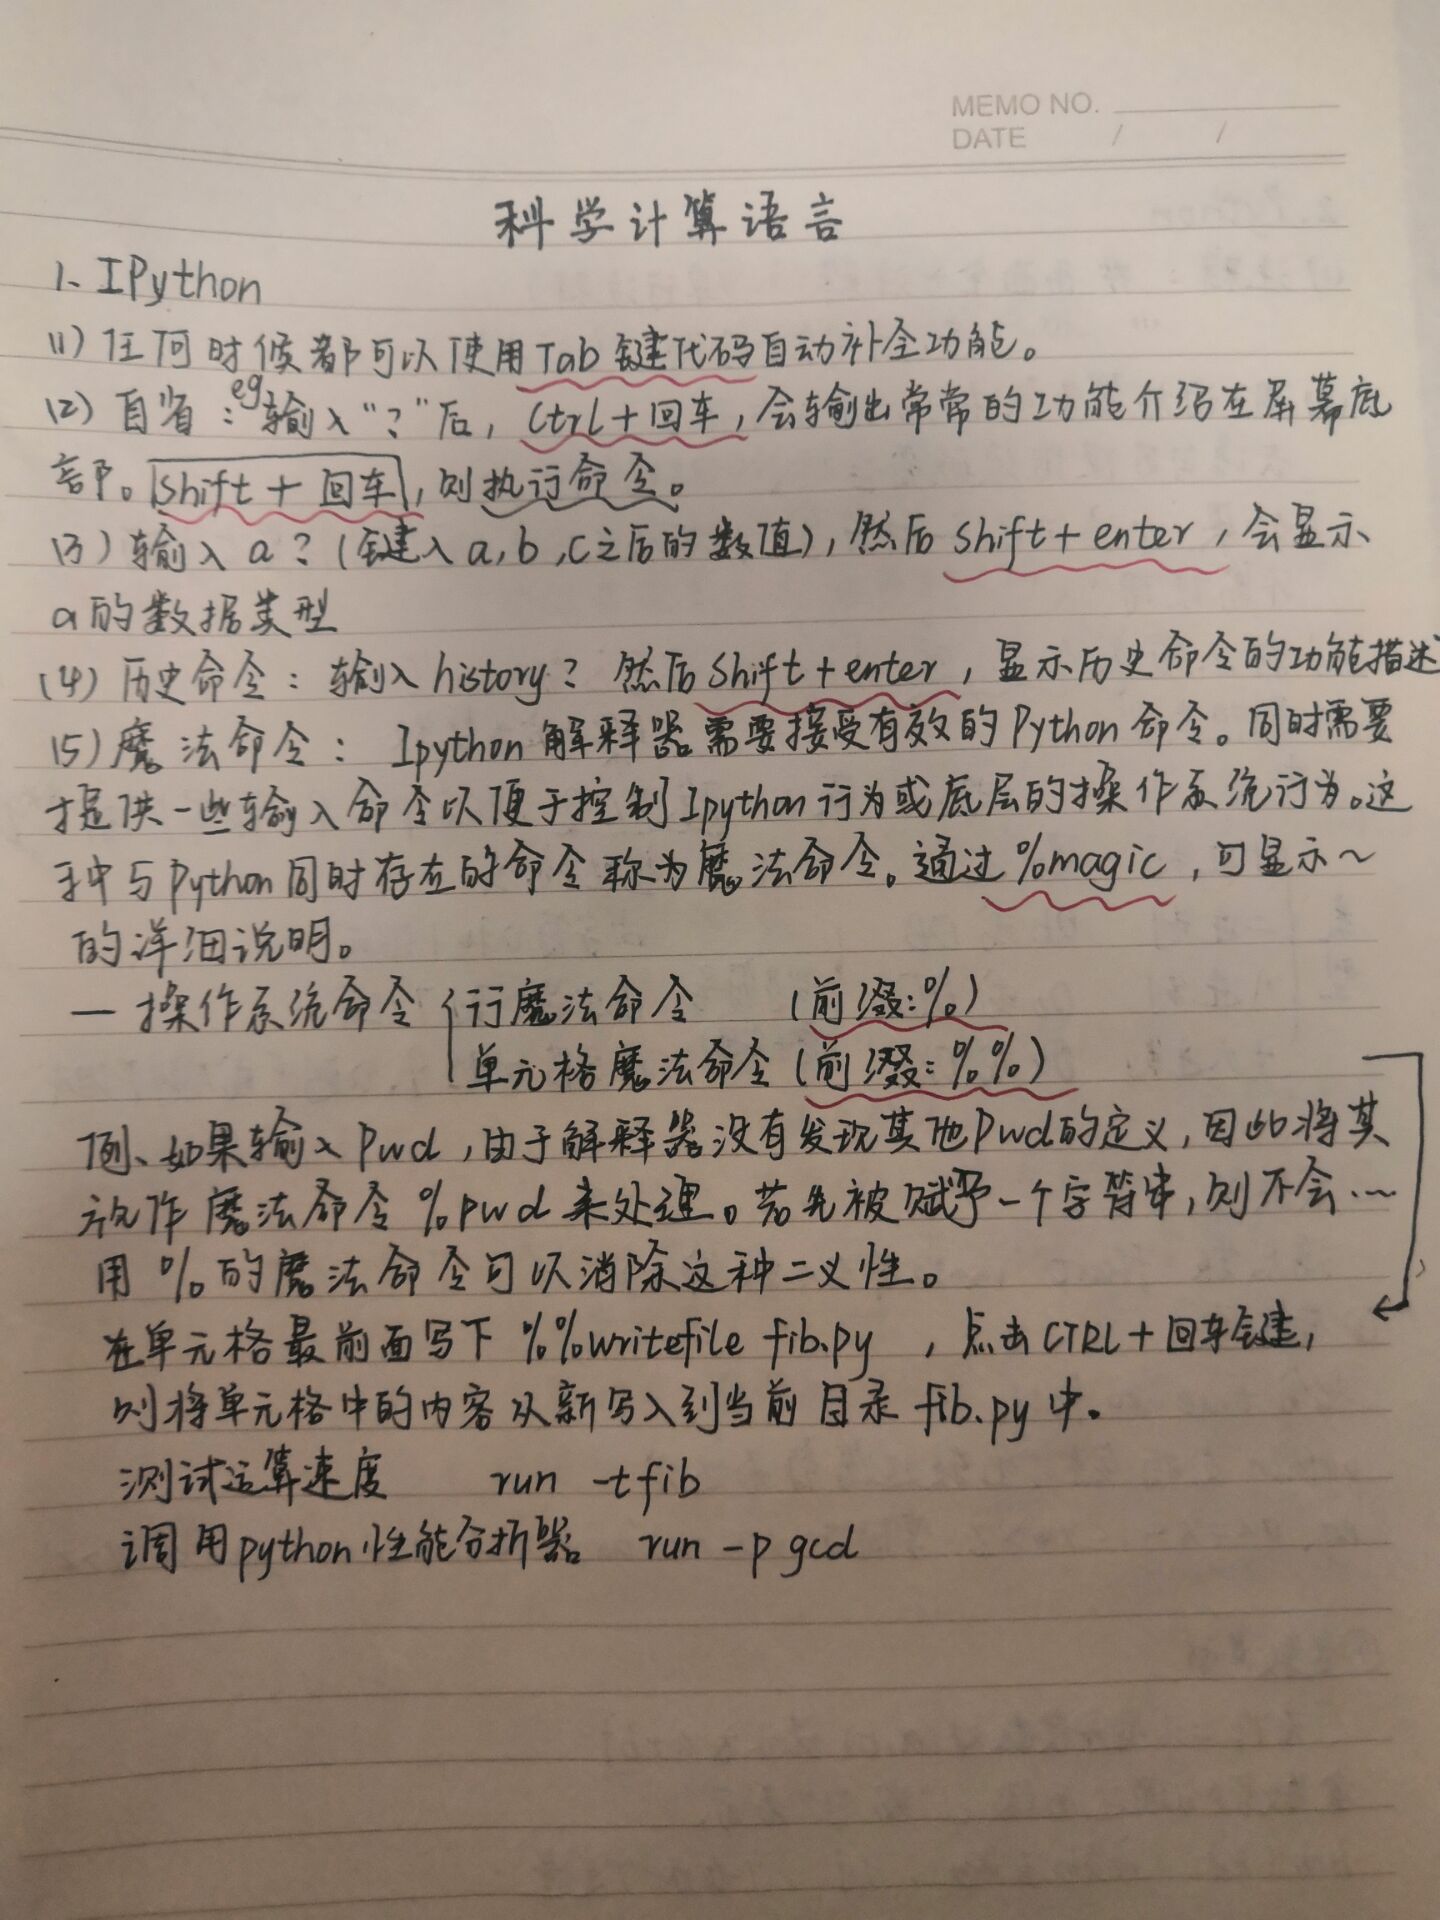 MEMO NO.
DATE / /
科学计算语言
1、IPython
(1) 任何时候都可以使用Tab键代码自动补全功能。
(2) 自省：eg输入“？”后，Ctrl+回车，会输出常常的功能介绍在屏幕底
部。shift+回车，则执行命令。
(3) 输入a？(键入a,b,c之后的数值)，然后shift+enter，会显示
a的数据类型
(4) 历史命令：输入history？然后shift+enter，显示历史命令的功能描述
(5) 魔法命令：Ipython解释器需要接受有效的Python命令。同时需要
提供一些输入命令以便于控制Ipython行为或底层的操作系统行为。这
种与python同时存在的命令称为魔法命令。通过%magic，可显示～
的详细说明。
一操作系统命令{行魔法命令 (前缀:%)
单元格魔法命令(前缀:%%)
例、如果输入pwd，由于解释器没有发现其他pwd的定义，因此将其
视作魔法命令%pwd来处理。若先被赋予一个字符串，则不会…
用%的魔法命令可以消除这种二义性。
在单元格最前面写下%%writefile fib.py，点击CTRL+回车键，
则将单元格中的内容从新写入到当前目录fib.py中。
测试运算速度 run -t fib
调用python性能分析器 run -p gcd